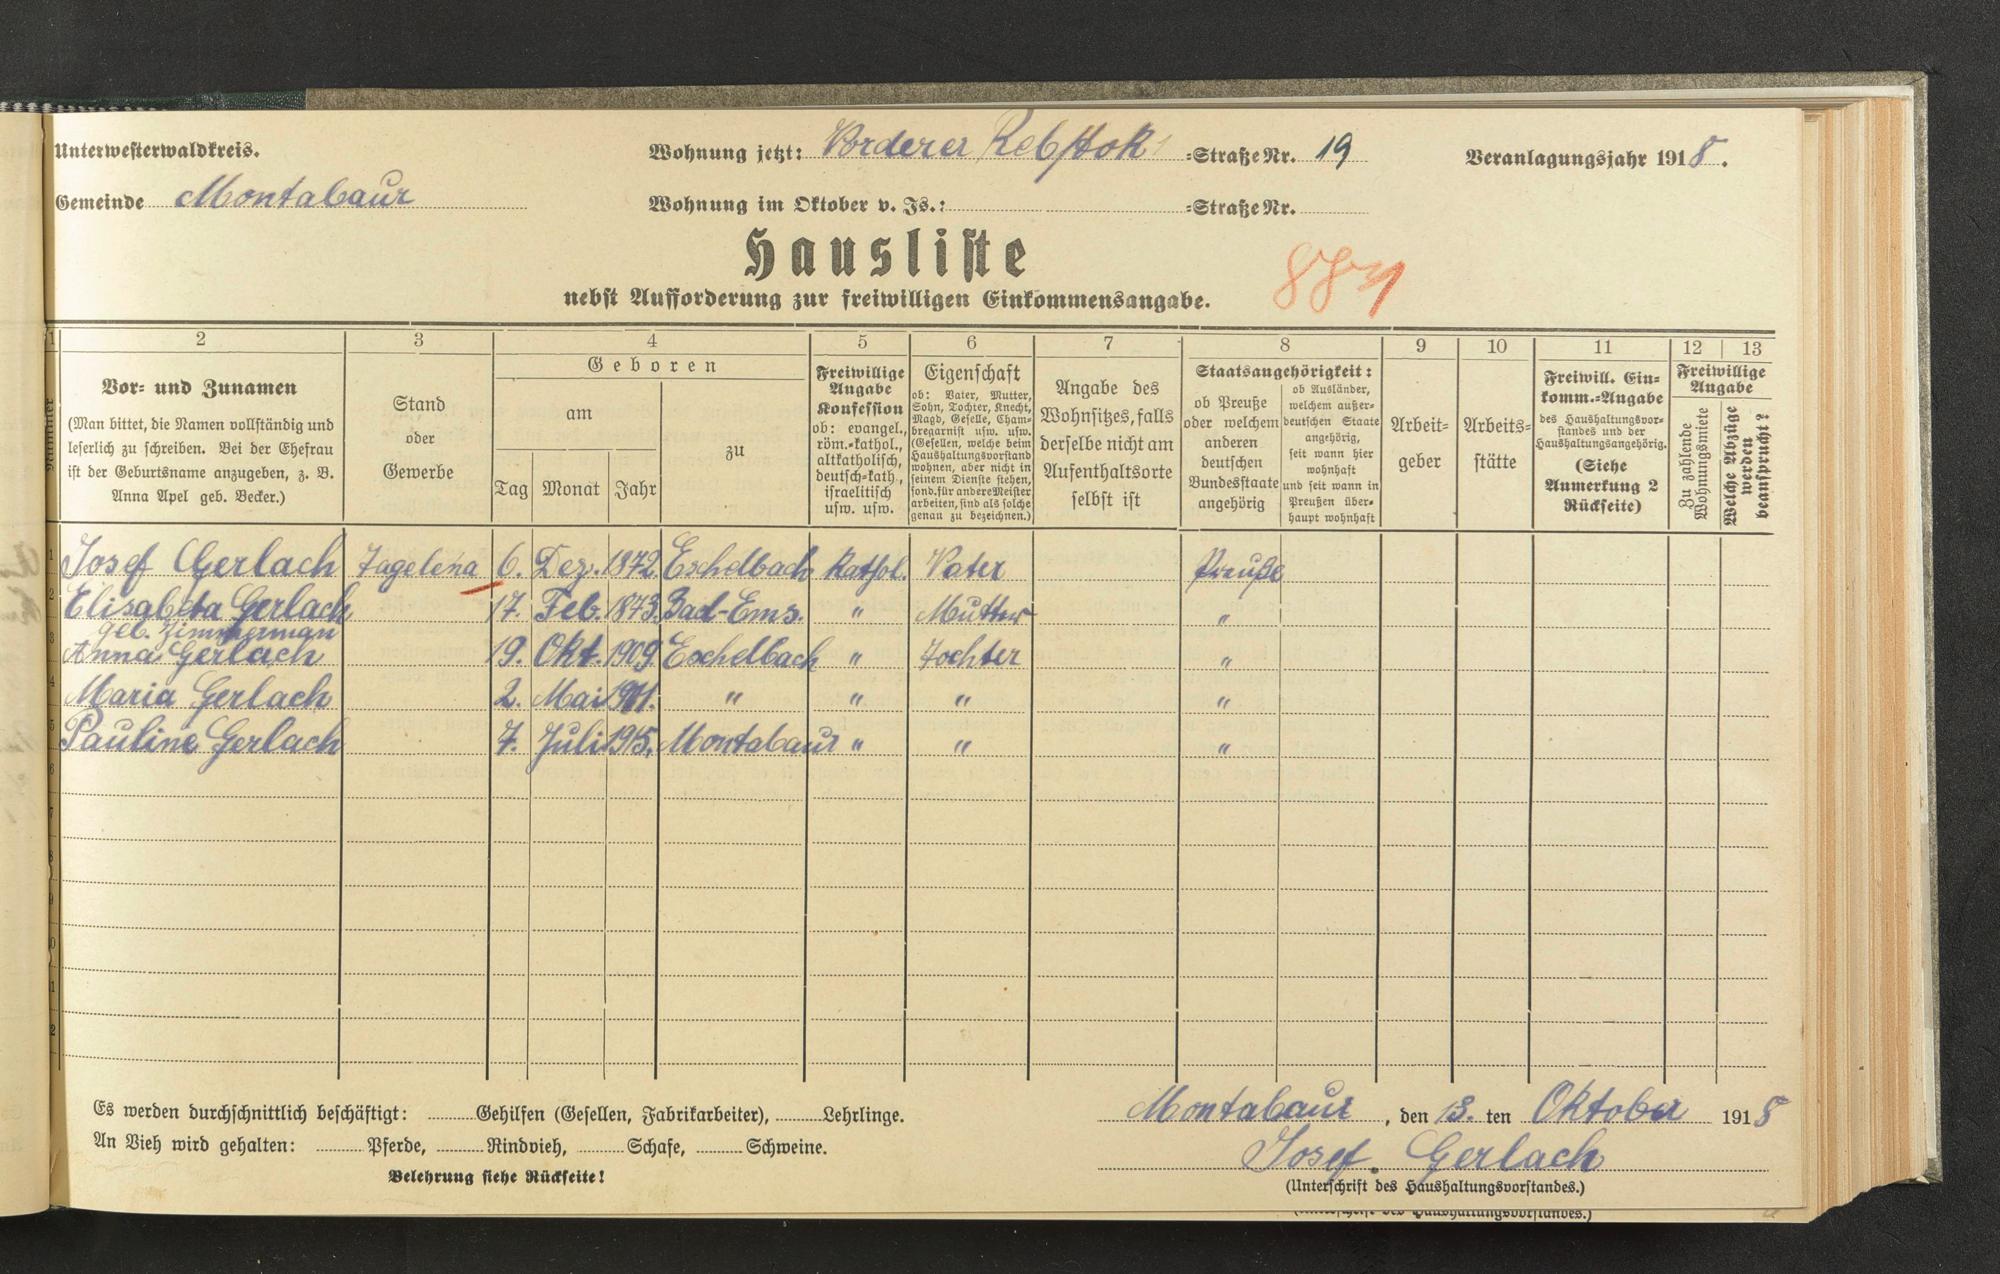 Unterwesterwaldkreis.
Wohnung jetzt: Vorderer Rebstok =Straße Nr. 19
Veranlagungsjahr 1918.
Gemeinde Montabaur
Wohnung im Oktober v. Js.: =Straße Nr.
Hausliste
nebst Aufforderung zur freiwilligen Einkommensangabe.
1 2 3 4 5 6 7 8 9 10 11 12 13
Nummer
Vor- und Zunamen
(Man bittet, die Namen vollständig und
leserlich zu schreiben. Bei der Ehefrau
ist der Geburtsname anzugeben, z. B.
Anna Apel geb. Becker.)
Stand
oder
Gewerbe
Geboren
am
Tag Monat Jahr
zu
Freiwillige
Angabe
Konfession
ob: evangel.,
röm.-kathol.,
altkatholisch,
deutsch-kath.,
israelitisch
usw. usw.
Eigenschaft
ob: Vater, Mutter,
Sohn, Tochter, Knecht,
Magd, Geselle, Cham-
bregarnist usw. usw.
(Gesellen, welche beim
Haushaltungsvorstand
wohnen, aber nicht in
seinem Dienste stehen,
sond. für andere Meister
arbeiten, sind als solche
genau zu bezeichnen.)
Angabe des
Wohnsitzes, falls
derselbe nicht am
Aufenthaltsorte
selbst ist
Staatsangehörigkeit:
ob Preuße
oder welchem
anderen
deutschen
Bundesstaate
angehörig
ob Ausländer,
welchem außer-
deutschen Staate
angehörig,
seit wann hier
wohnhaft
und seit wann in
Preußen über-
haupt wohnhaft
Arbeit-
geber
Arbeits-
stätte
Freiwill. Ein-
komm.-Angabe
des Haushaltungsvor-
standes und der
Haushaltungsangehörig.
(Siehe
Anmerkung 2
Rückseite)
Freiwillige
Angabe
Zu zahlende
Wohnungsmiete
Welche Abzüge
werden
beansprucht?
1 Josef Gerlach Tagelöna 6. Dez. 1872. Eschelbach Kathol. Vater Preuße
2 Elisabeta Gerlach 17. Feb. 1873. Bad-Ems. " Mutter "
geb. Zimmerman
3 Anna Gerlach 19. Okt. 1909. Eschelbach " Tochter "
4 Maria Gerlach 2. Mai 1911. " " " "
5 Pauline Gerlach 7. Juli 1915. Montabaur " " "
6
7
8
9
10
Es werden durchschnittlich beschäftigt: Gehilfen (Gesellen, Fabrikarbeiter), Lehrlinge.
An Vieh wird gehalten: Pferde, Rindvieh, Schafe, Schweine.
Belehrung siehe Rückseite!
Montabaur, den 13. ten Oktober 1918
Josef. Gerlach
(Unterschrift des Haushaltungsvorstandes.)
(Unterschrift des Haushaltungsvorstandes.)